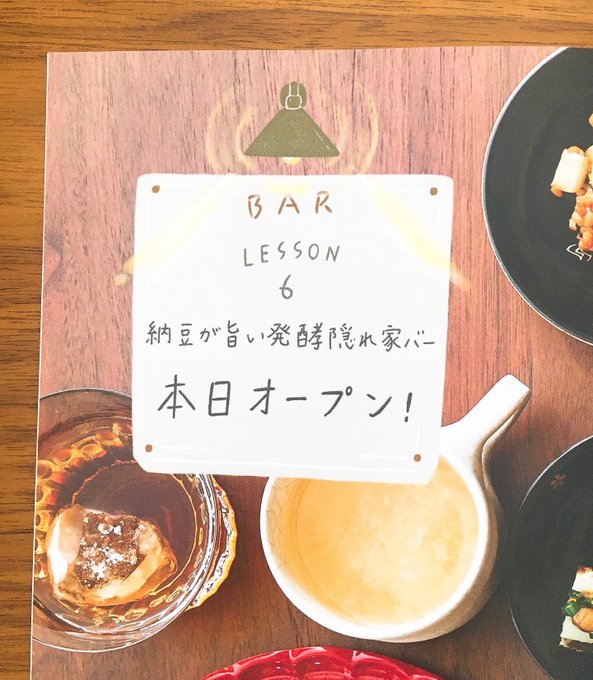 BAR
LESSON
6
納豆が旨い発酵隠れ家バー
本日オープン!